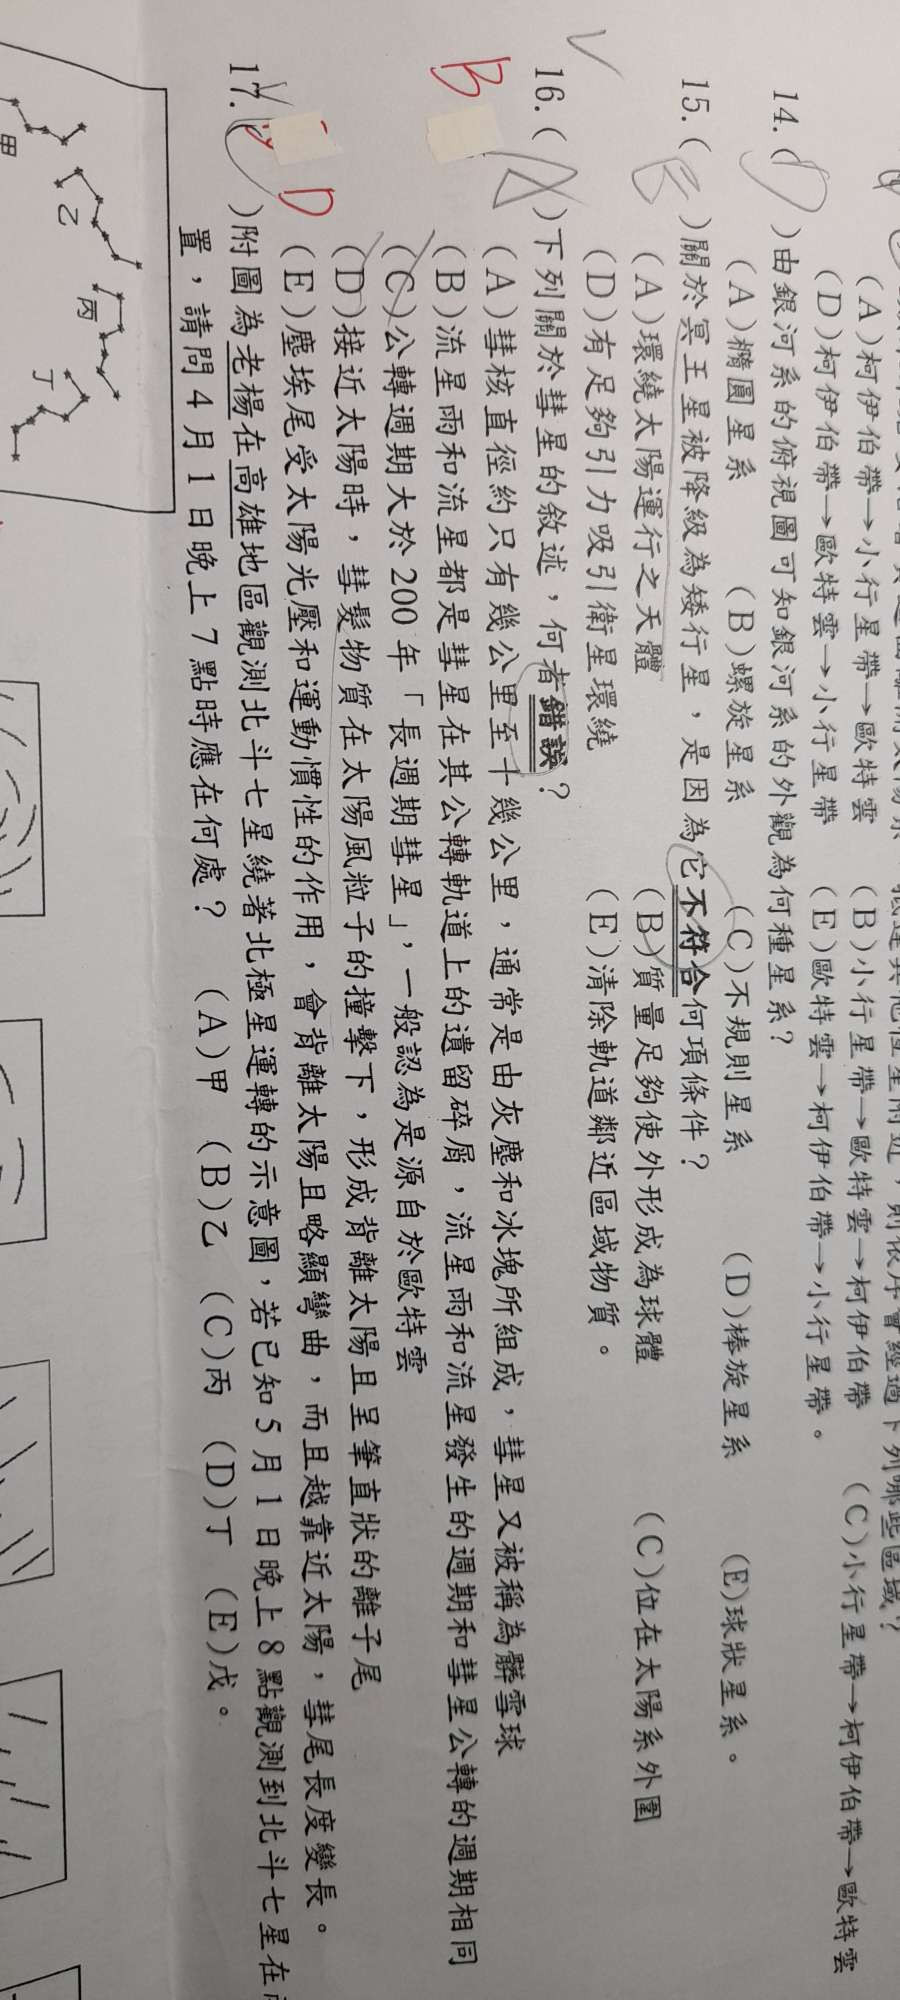 (A)柯伊伯帶→小行星帶→歐特雲 (B)小行星帶→歐特雲→柯伊伯帶 (C)小行星帶→柯伊伯帶→歐特雲
(D)柯伊伯帶→歐特雲→小行星帶 (E)歐特雲→柯伊伯帶→小行星帶。
14.(D)由銀河系的俯視圖可知銀河系的外觀為何種星系?
(A)橢圓星系 (B)螺旋星系 (C)不規則星系 (D)棒旋星系 (E)球狀星系。
15.( )關於冥王星被降級為矮行星,是因為它不符合何項條件?
(A)環繞太陽運行之天體 (B)質量足夠使外形成為球體 (C)位在太陽系外圍
(D)有足夠引力吸引衛星環繞 (E)清除軌道鄰近區域物質。
16.( )下列關於彗星的敘述,何者錯誤?
B
(A)彗核直徑約只有幾公里至十幾公里,通常是由灰塵和冰塊所組成,彗星又被稱為髒雪球
(B)流星雨和流星都是彗星在其公轉軌道上的遺留碎屑,流星雨和流星發生的週期和彗星公轉的週期相同
(C)公轉週期大於200年「長週期彗星」,一般認為是源自於歐特雲
(D)接近太陽時,彗髮物質在太陽風粒子的撞擊下,形成背離太陽且呈筆直狀的離子尾
(E)塵埃尾受太陽光壓和運動慣性的作用,會背離太陽且略顯彎曲,而且越靠近太陽,彗尾長度變長。
D
17.( )附圖為老楊在高雄地區觀測北斗七星繞著北極星運轉的示意圖,若已知5月1日晚上8點觀測到北斗七星在
置,請問4月1日晚上7點時應在何處? (A)甲 (B)乙 (C)丙 (D)丁 (E)戊。
甲
乙
丙
丁